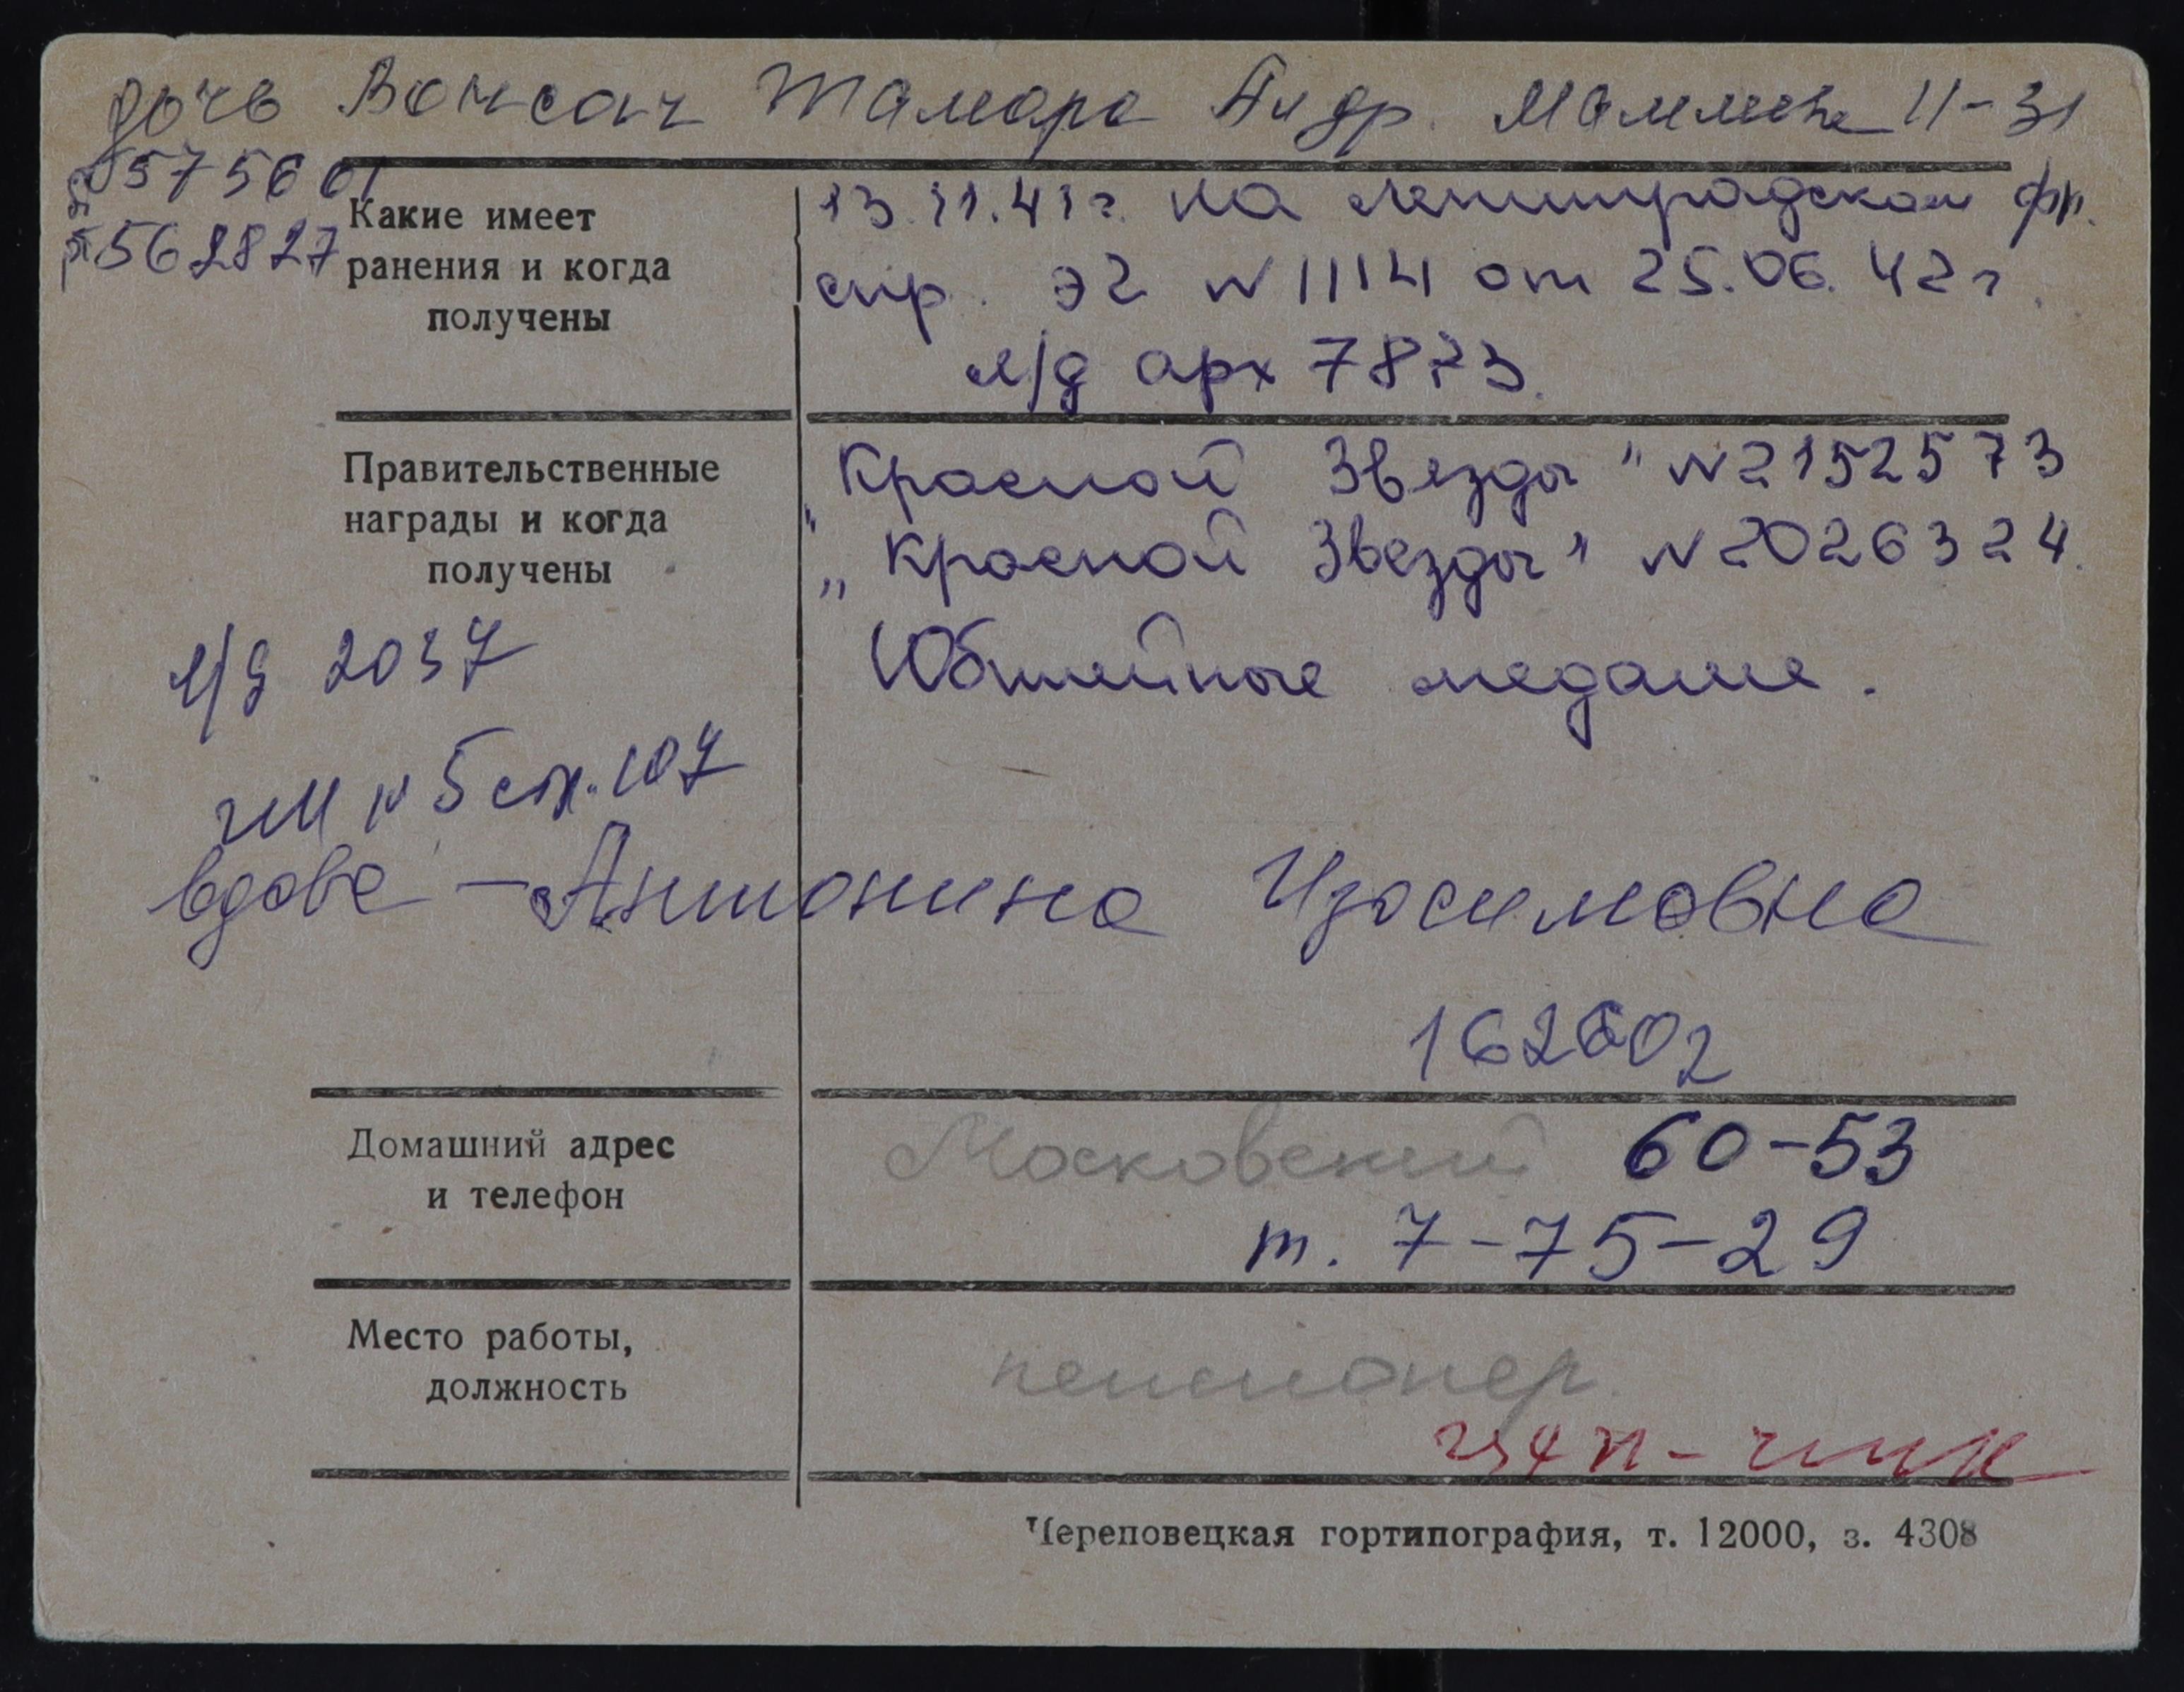 дочь Вонсач Тамара Андр. Маммене 11-31
575601
562827
Какие имеет
ранения и когда
получены
13.11.41г. на Ленинградском фр.
спр. ЭГ N 1114 от 25.06.42г.
л/д арх 7873.
Правительственные
награды и когда
получены
"Красной Звезды" N2152573
"Красной Звезды" N2026324.
Юбилейные медали.
л/д 2037
N 5 стр. 107
вдова - Антонина Изосимовна
162602
Домашний адрес
и телефон
Московский 60-53
т. 7-75-29
Место работы,
должность
пенсионер.
Череповецкая гортипография, т. 12000, з. 4308